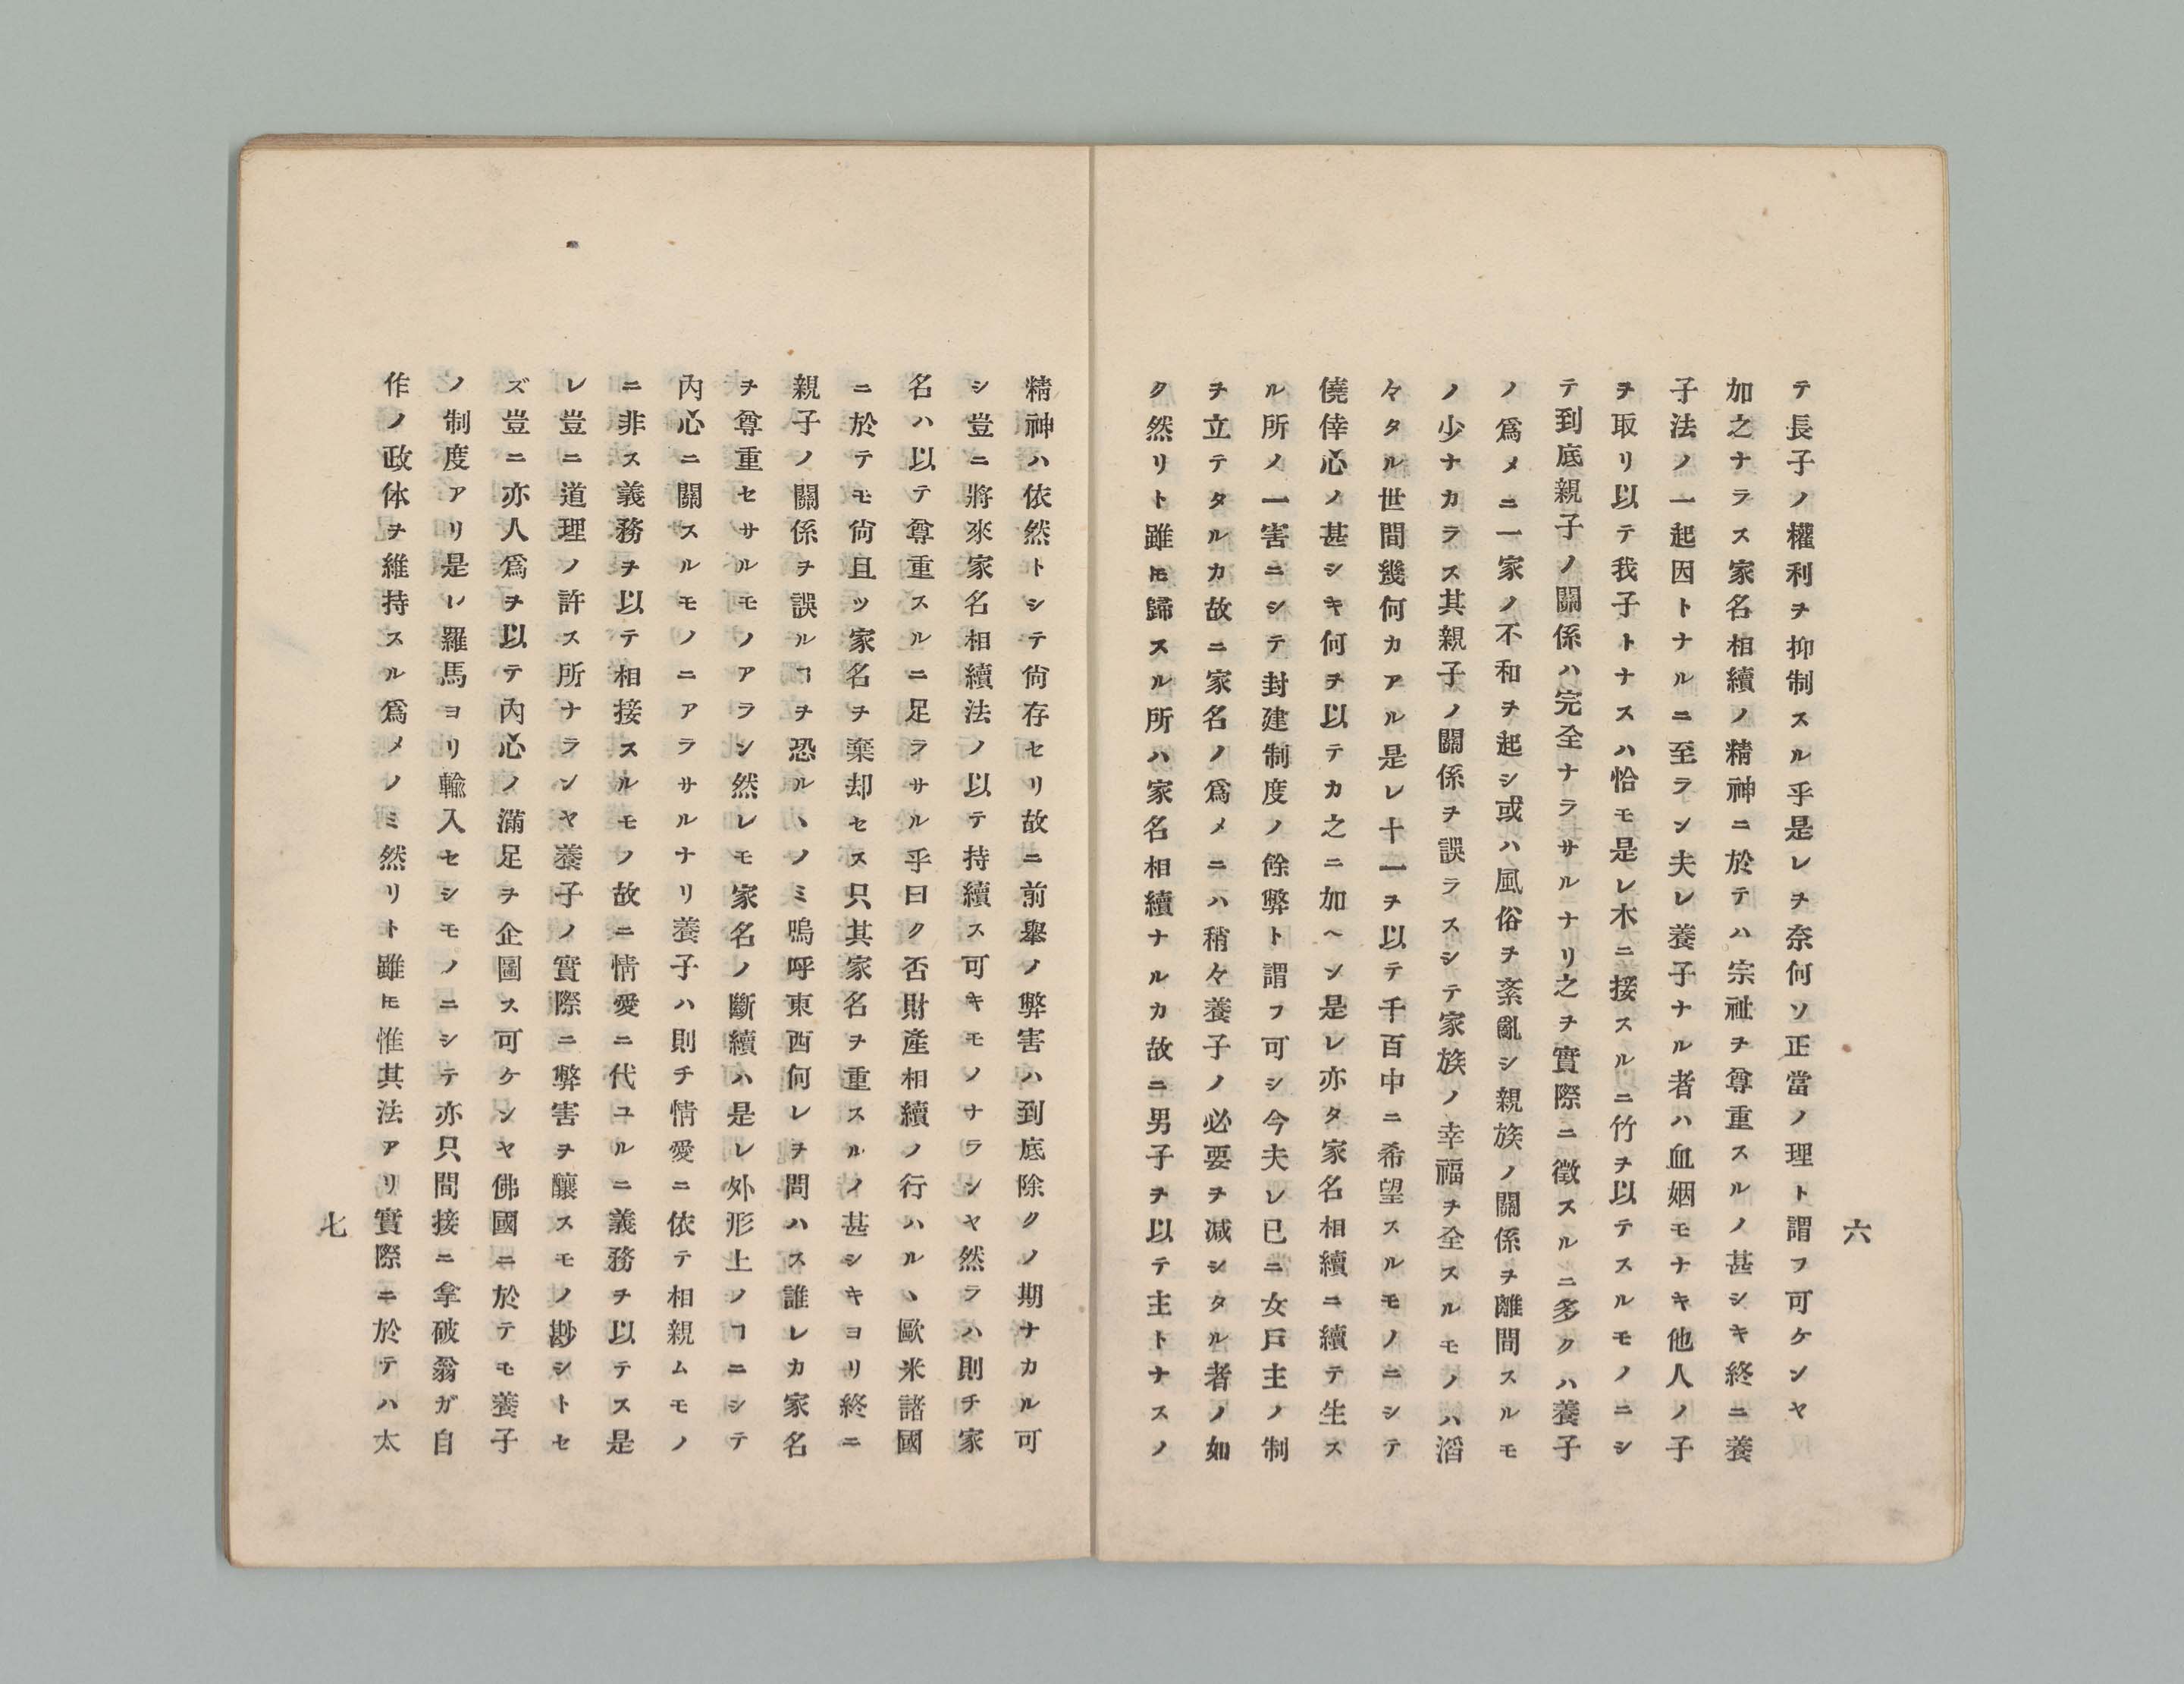 六
テ長子ノ權利ヲ抑制スル乎是レヲ奈何ソ正當ノ理ト謂フ可ケンヤ
加之ナラス家名相續ノ精神ニ於テハ宗祉ヲ尊重スルノ甚シキ終ニ養
子法ノ一起因トナルニ至ラン夫レ養子ナル者ハ血姻モナキ他人ノ子
ヲ取リ以テ我子トナスハ恰モ是レ木ニ接スルニ竹ヲ以テスルモノニシ
テ到底親子ノ關係ハ完全ナラサルナリ之ヲ實際ニ徵スルニ多クハ養子
ノ爲メニ一家ノ不和ヲ起シ或ハ風俗ヲ紊亂シ親族ノ關係ヲ離間スルモ
ノ少ナカラス其親子ノ關係ヲ誤ラスシテ家族ノ幸福ヲ全スルモノハ滔
々タル世間幾何カアル是レ十一ヲ以テ千百中ニ希望スルモノニシテ
僥倖心ノ甚シキ何ヲ以テカ之ニ加ヘン是レ亦タ家名相續ニ續テ生ス
ル所ノ一害ニシテ封建制度ノ餘弊ト謂フ可シ今夫レ已ニ女戸主ノ制
ヲ立テタルカ故ニ家名ノ爲メニハ稍々養子ノ必要ヲ减シタル者ノ如
ク然リト雖𪜈歸スル所ハ家名相續ナルカ故ニ男子ヲ以テ主トナスノ
精神ハ依然トシテ尙存セリ故ニ前擧ノ弊害ハ到底除クノ期ナカル可
シ豈ニ將來家名相續法ノ以テ持續ス可キモノナランヤ然ラハ則チ家
名ハ以テ尊重スルニ足ラサル乎曰ク否財產相續ノ行ハルヽ歐米諸國
ニ於テモ尙且ツ家名ヲ棄却セス只其家名ヲ重スルノ甚シキヨリ終ニ
親子ノ關係ヲ誤ルヿヲ恐ルヽノミ嗚呼東西何レヲ問ハス誰レカ家名
ヲ尊重セサルモノアラン然レモ家名ノ斷續ハ是レ外形上ノヿニシテ
內心ニ關スルモノニアラサルナリ養子ハ則チ情愛ニ依テ相親ムモノ
ニ非ス義務ヲ以テ相接スルモノ故ニ情愛ニ代ユルニ義務ヲ以テス是
レ豈ニ道理ノ許ス所ナランヤ養子ノ實際ニ弊害ヲ釀スモノ尠シトセ
ズ豈ニ亦人爲ヲ以テ內心ノ滿足ヲ企圖ス可ケンヤ佛國ニ於テモ養子
ノ制度アリ是レ羅馬ヨリ輸入セシモノニシテ亦只間接ニ拿破翁ガ自
作ノ政体ヲ維持スル爲メノミ然リト雖𪜈惟其法アリ實際ニ於テハ太
七